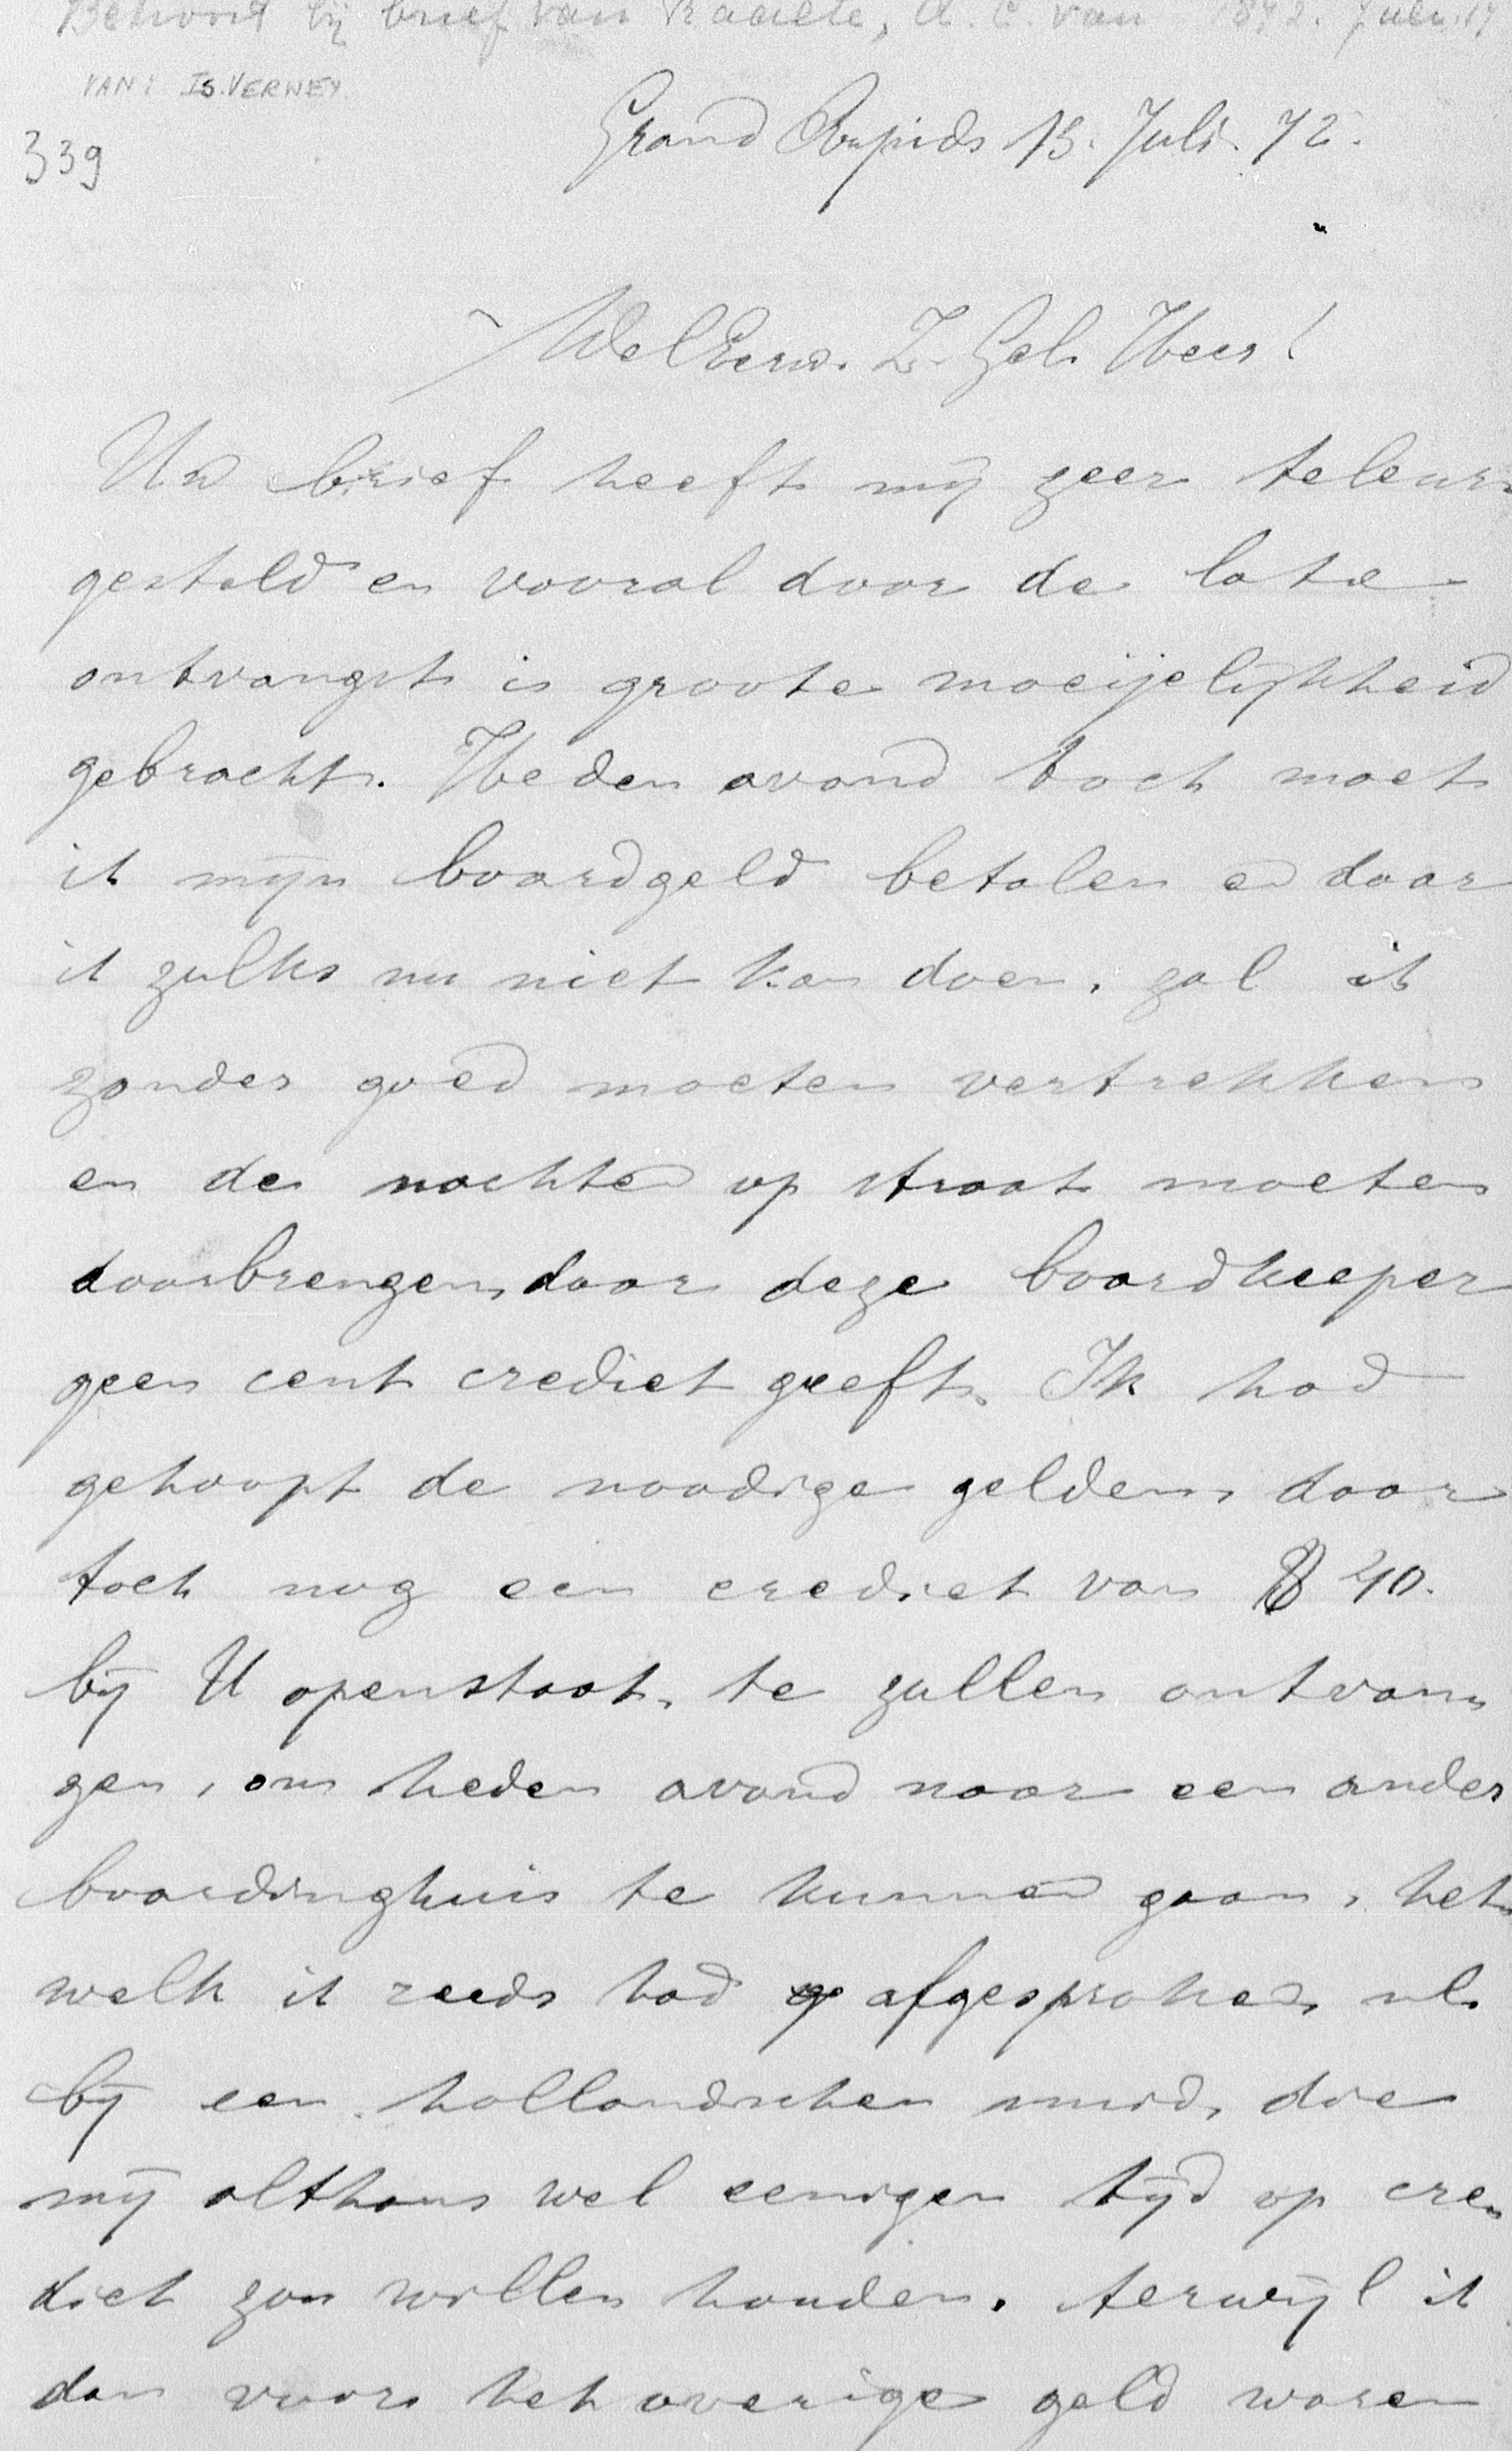 Behoort bij brief van Raalte, A. C. van 1872. Juli 17
VAN: IS. VERWEY
339
Grand Rapids 13. Juli. 72.
WelEerw. Z. Gel. Heer!
Uw brief heeft mij zeer teleur-
gesteld en vooral door de late
ontvangst is groote moeijelijkheid
gebracht. Heden avond toch moet
ik mijn boardgeld betalen en daar
ik zulks nu niet kan doen, zal ik
zonder goed moeten vertrekken
en de nachten op straat moeten
doorbrengen, daar deze boardkeeper
geen cent crediet geeft. Ik had
gehoopt de noodige gelden, daar
toch nog een crediet van $ 40.
bij U openstaat, te zullen ontvan-
gen, om heden avond naar een ander
boardinghuis te kunnen gaan, het-
welk ik reeds had afgesproken, nl.
bij een hollandschen smid, die
mij althans wel eenigen tijd op cre-
diet zou willen houden, terwijl ik
dan voor het overige geld waren